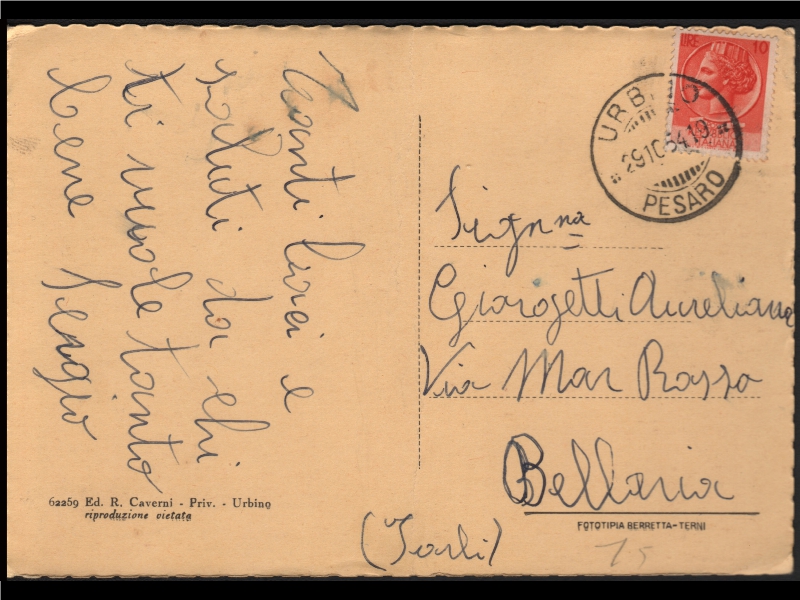 Tanti baci e
saluti da chi
ti vuole tanto
bene Sergio
62259 Ed. R. Caverni - Priv. - Urbino
riproduzione vietata
LIRE 10
URBINO
29 10 54 19
PESARO
ITALIANA
Sig.na
Giorgetti Aureliana
Via Mar Rosso
Bellaria
(Forlì)
FOTOTIPIA BERRETTA-TERNI
15